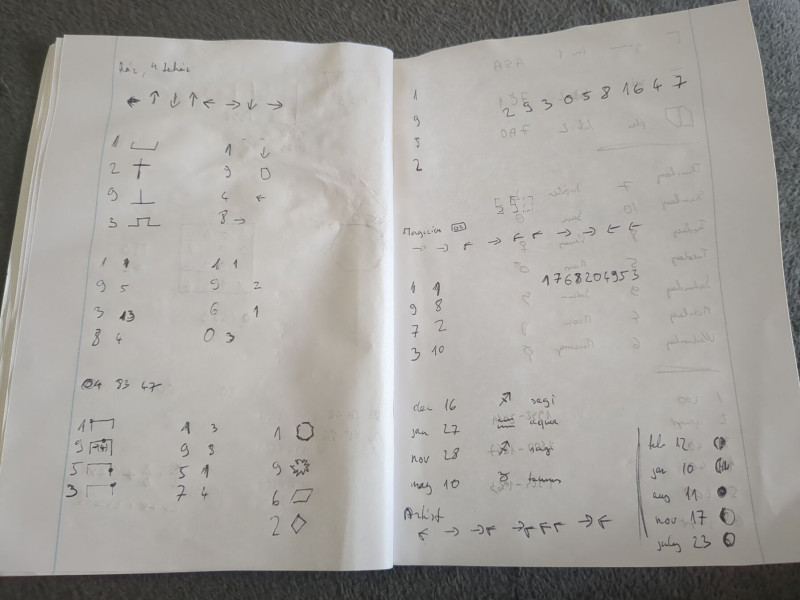 ← ↑ ↓ ↑ ← → ↓ →
1
2
9
3
1 ↓
9
4 ←
8 →
1
9 5
3 13
8 4
1 1
5 2
6 1
0 3
04 93 47
1
9
5
3
1 3
9 9
5 1
7 4
1
9
6
2
1
9
2
2 9 3 0 5 8 1 6 4 7
Magician
→ → ← → ← ← → → ← ←
1 1
9 8
7 2
3 10
1768204953
dec 16 ♐ sagi
jan 27 ♒ aqua
nov 28 ♐ sagi
may 10 ♉ taurus
Artist
← → → ← → ← ← → ←
feb 12
jan 10
aug 11
nov 17
july 23